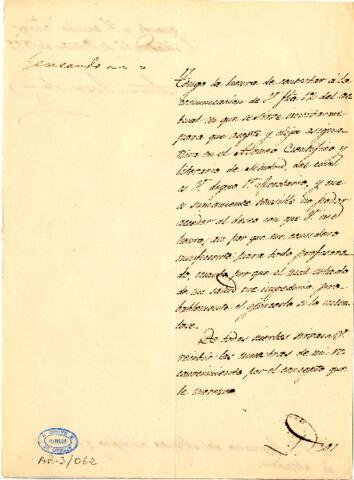 Tengo la honra de contestar á la
comunicacion de V. fha 12 del ac-
tual en que se sirve invitarme
para que acepte y elija asigna-
tura en el Ateneo Científico y
literario de Madrid, del cual
es V. digno 1er Secretario, y me
es sumamente sensible no poder
acceder al deseo con que V. me
honra, no por que me considero
insuficiente para todo profesora-
do, cuanto por que el mal estado
de mi salud me impediria pro-
bablemente el ejercerlo si lo acepta-
se.
De todas suertes sirvase V.
recibir las muestras de mi re-
conocimiento por el concepto que
le merezco
AM-3/062